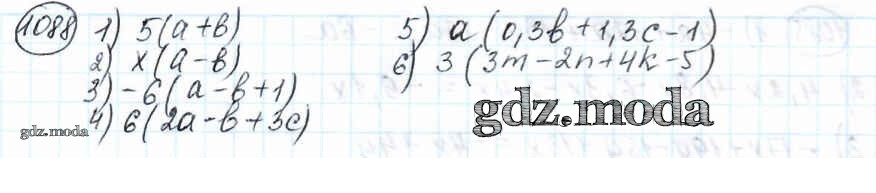 1088 1) 5(a+b)
2) x(a-b)
3) -6(a-b+1)
4) 6(2a-b+3c)
5) a(0,3b+1,3c-1)
6) 3(3m-2n+4k-5)
gdz.moda
gdz.moda